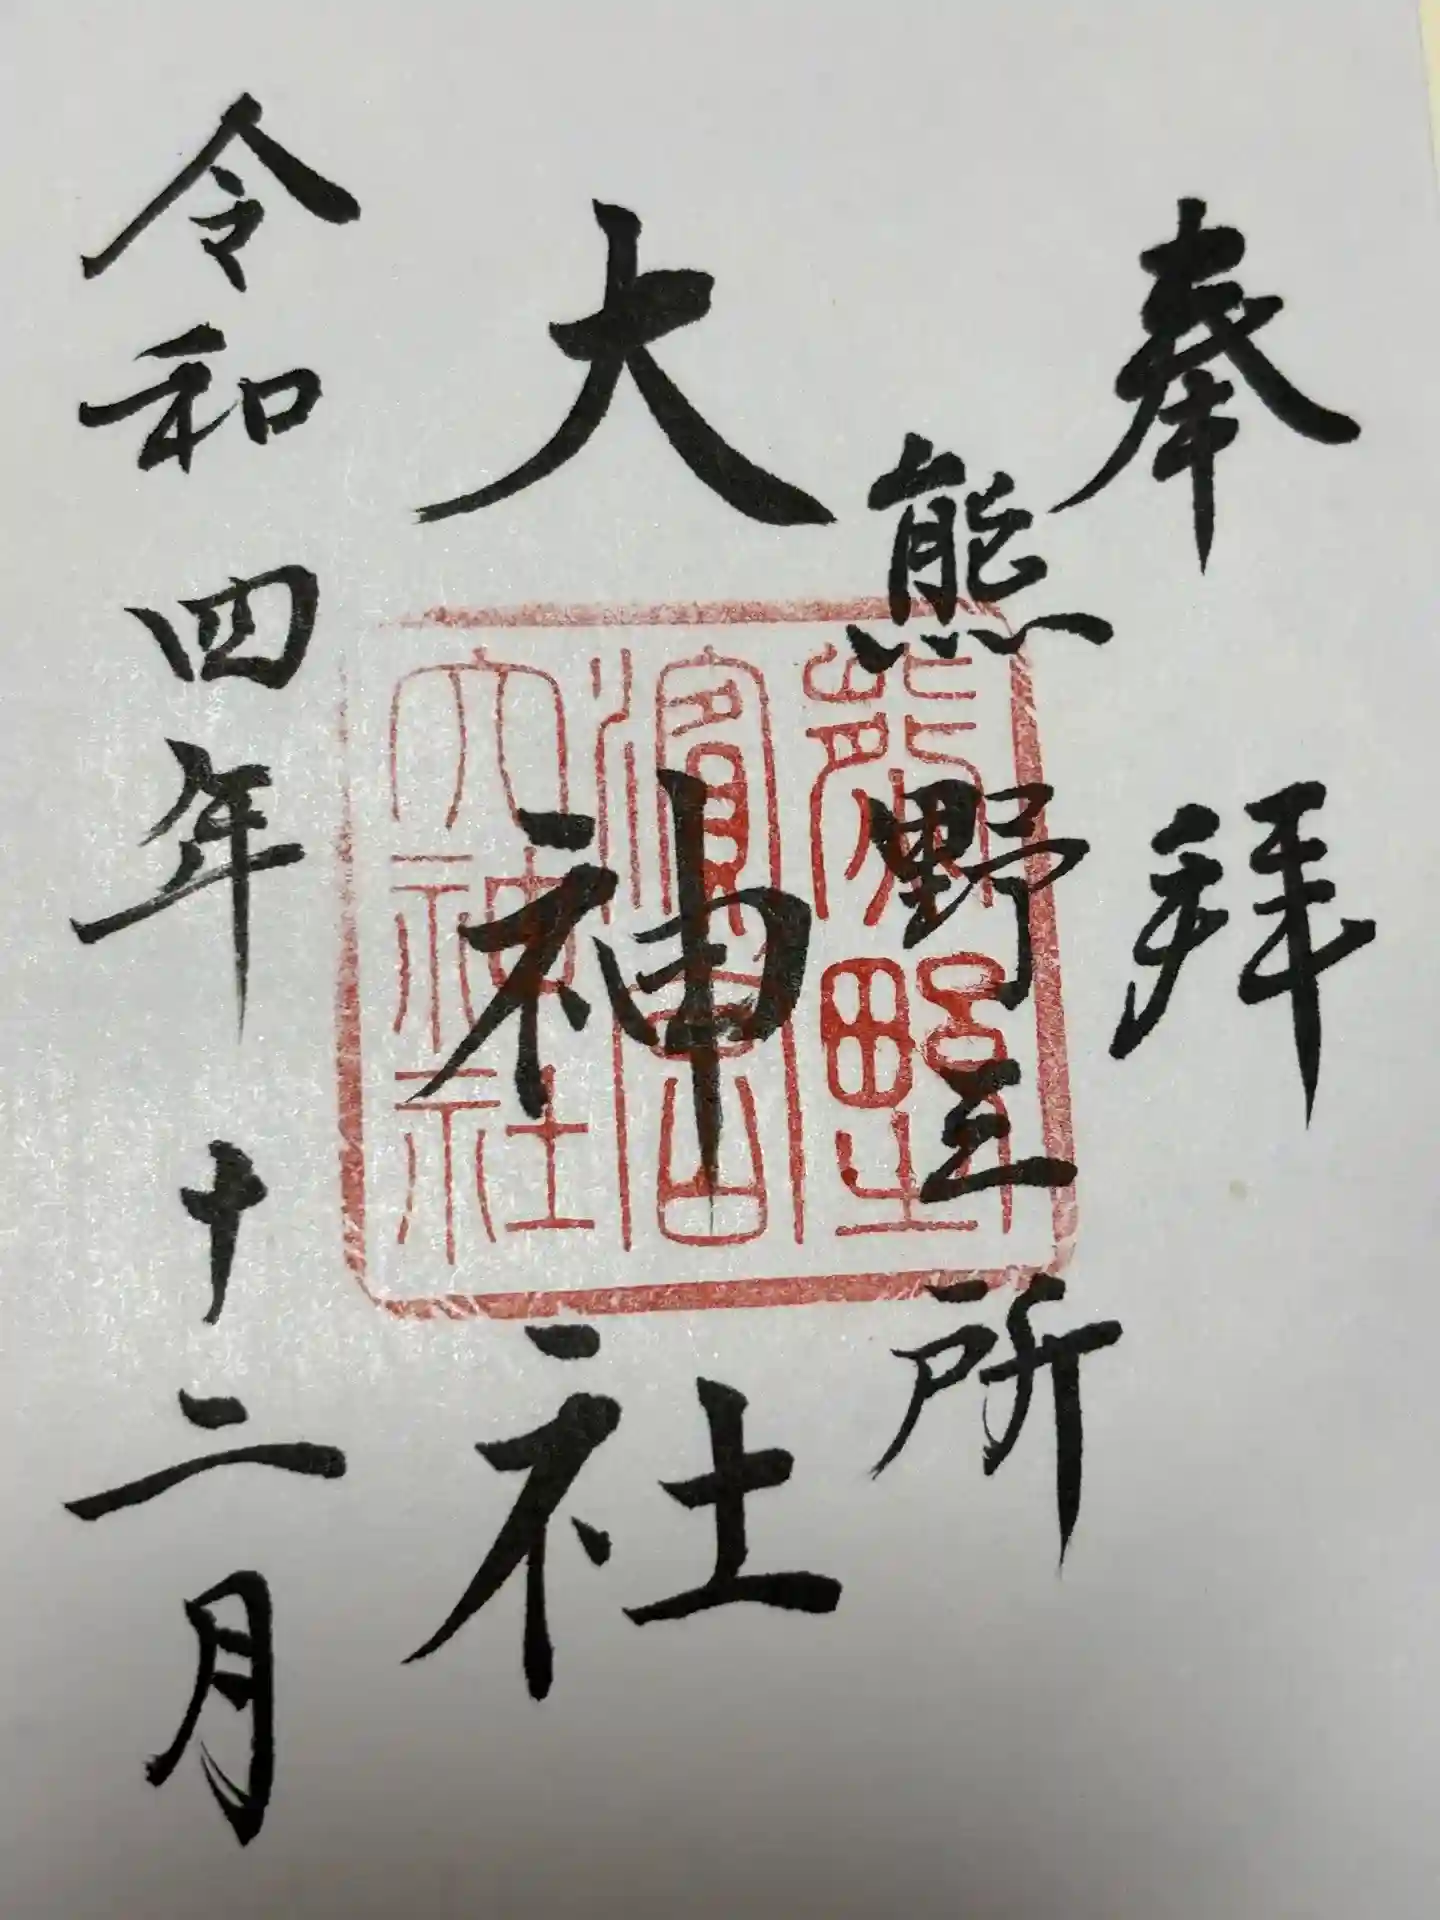 奉拝
熊野三所
大神社
令和四年十二月
熊野
濱宮
大神社